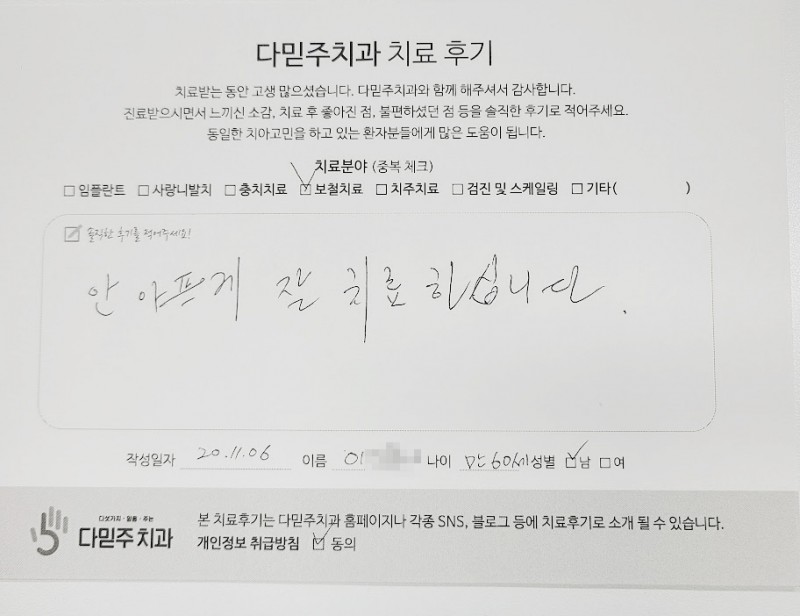 다믿주치과 치료 후기
치료받는 동안 고생 많으셨습니다. 다믿주치과와 함께 해주셔서 감사합니다.
진료받으시면서 느끼신 소감, 치료 후 좋아진 점, 불편하셨던 점 등을 솔직한 후기로 적어주세요.
동일한 치아고민을 하고 있는 환자분들에게 많은 도움이 됩니다.
치료분야 (중복 체크)
☐ 임플란트 ☐ 사랑니발치 ☐ 충치치료 ☑ 보철치료 ☐ 치주치료 ☐ 검진 및 스케일링 ☐ 기타( )
솔직한 후기를 적어주세요!
안 아프게 잘 치료하십니다.
작성일자 20.11.06 이름 이 나이 만60세 성별 ☑남 ☐여
다섯가지·믿음·주는
다믿주치과
본 치료후기는 다믿주치과 홈페이지나 각종 SNS, 블로그 등에 치료후기로 소개 될 수 있습니다.
개인정보 취급방침 ☑ 동의